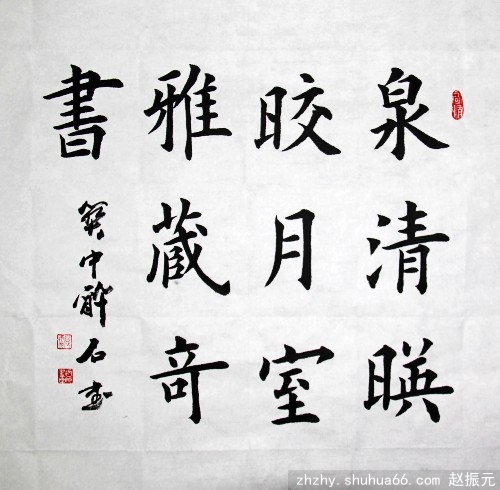 泉清暎
皎月室
雅藏奇
書
癸中醉石書
zhzhy.shuhua66.com 赵振元